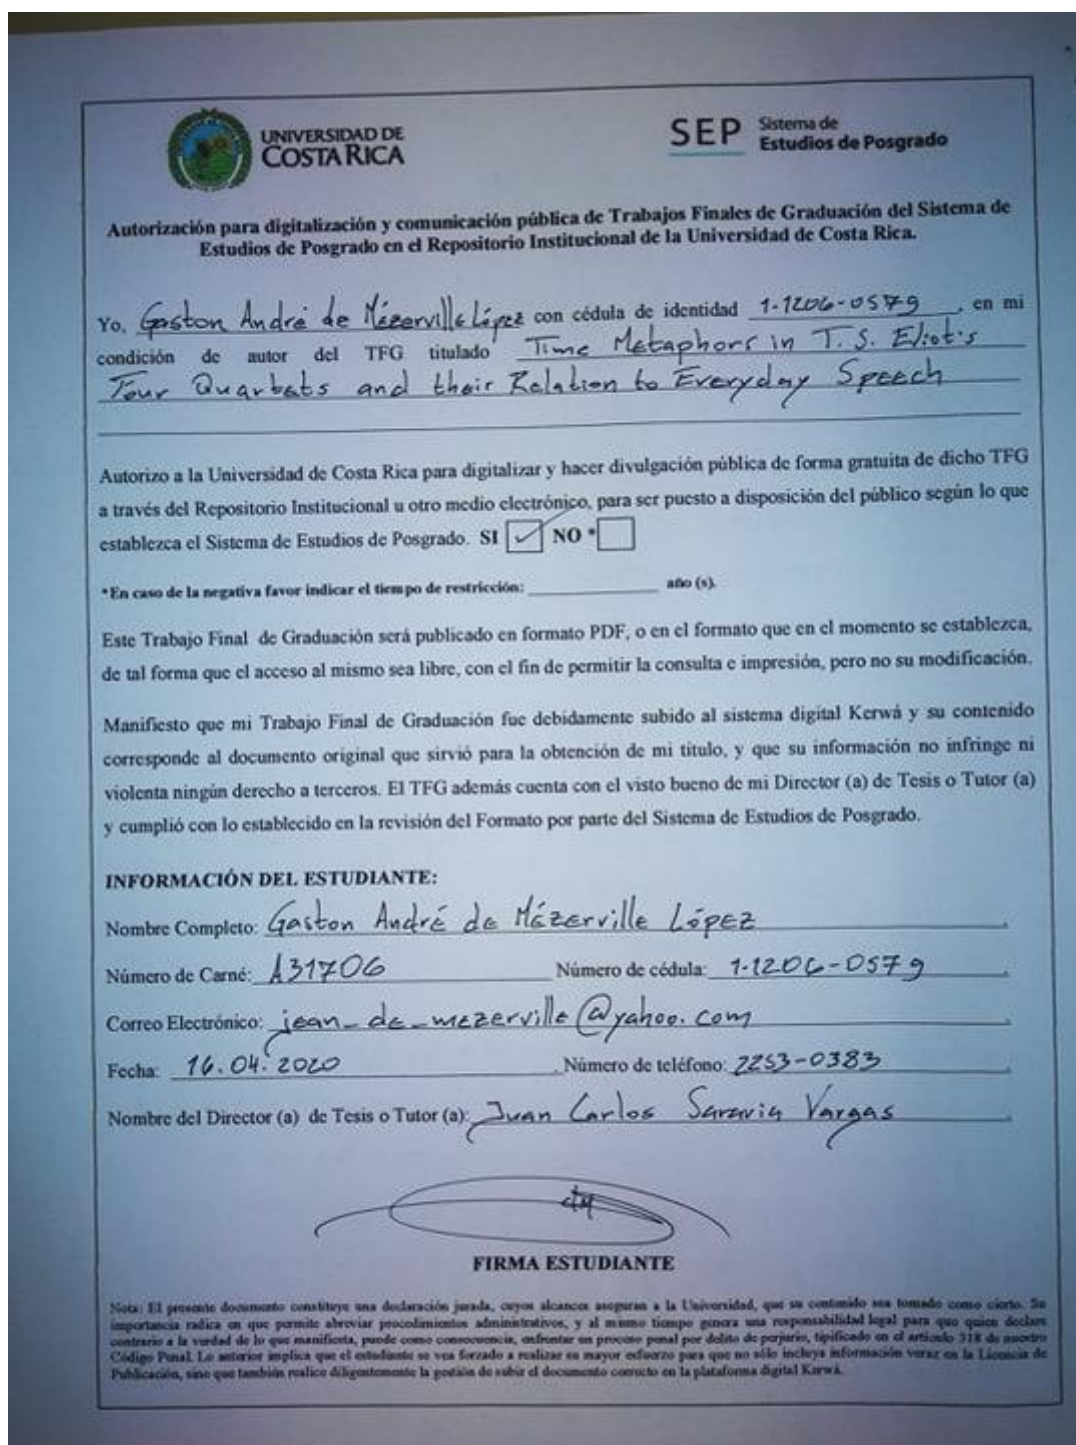 UNIVERSIDAD DE
COSTA RICA
SEP Sistema de
Estudios de Posgrado
Autorización para digitalización y comunicación pública de Trabajos Finales de Graduación del Sistema de
Estudios de Posgrado en el Repositorio Institucional de la Universidad de Costa Rica.
Yo, Gaston André de Mézerville López con cédula de identidad 1-1206-0579, en mi
condición de autor del TFG titulado Time Metaphors in T. S. Eliot's
Four Quartets and their Relation to Everyday Speech
Autorizo a la Universidad de Costa Rica para digitalizar y hacer divulgación pública de forma gratuita de dicho TFG
a través del Repositorio Institucional u otro medio electrónico, para ser puesto a disposición del público según lo que
establezca el Sistema de Estudios de Posgrado. SI ✓ NO *
*En caso de la negativa favor indicar el tiempo de restricción: ____________ año (s).
Este Trabajo Final de Graduación será publicado en formato PDF, o en el formato que en el momento se establezca,
de tal forma que el acceso al mismo sea libre, con el fin de permitir la consulta e impresión, pero no su modificación.
Manifiesto que mi Trabajo Final de Graduación fue debidamente subido al sistema digital Kerwá y su contenido
corresponde al documento original que sirvió para la obtención de mi título, y que su información no infringe ni
violenta ningún derecho a terceros. El TFG además cuenta con el visto bueno de mi Director (a) de Tesis o Tutor (a)
y cumplió con lo establecido en la revisión del Formato por parte del Sistema de Estudios de Posgrado.
INFORMACIÓN DEL ESTUDIANTE:
Nombre Completo: Gaston André de Mézerville López.
Número de Carné: A31706 Número de cédula: 1-1206-0579.
Correo Electrónico: jean_de_mezerville@yahoo.com.
Fecha: 16.04.2020. Número de teléfono: 2253-0383.
Nombre del Director (a) de Tesis o Tutor (a): Juan Carlos Saravia Vargas.
FIRMA ESTUDIANTE
Nota: El presente documento constituye una declaración jurada, cuyos alcances aseguran a la Universidad, que su contenido sea tomado como cierto. Su
importancia radica en que permite abreviar procedimientos administrativos, y al mismo tiempo genera una responsabilidad legal para que quien declare
contrario a la verdad de lo que manifiesta, puede como consecuencia, enfrentar un proceso penal por delito de perjurio, tipificado en el artículo 318 de nuestro
Código Penal. Lo anterior implica que el estudiante se vea forzado a realizar su mayor esfuerzo para que no sólo incluya información veraz en la Licencia de
Publicación, sino que también realice diligentemente la gestión de subir el documento correcto en la plataforma digital Kerwá.